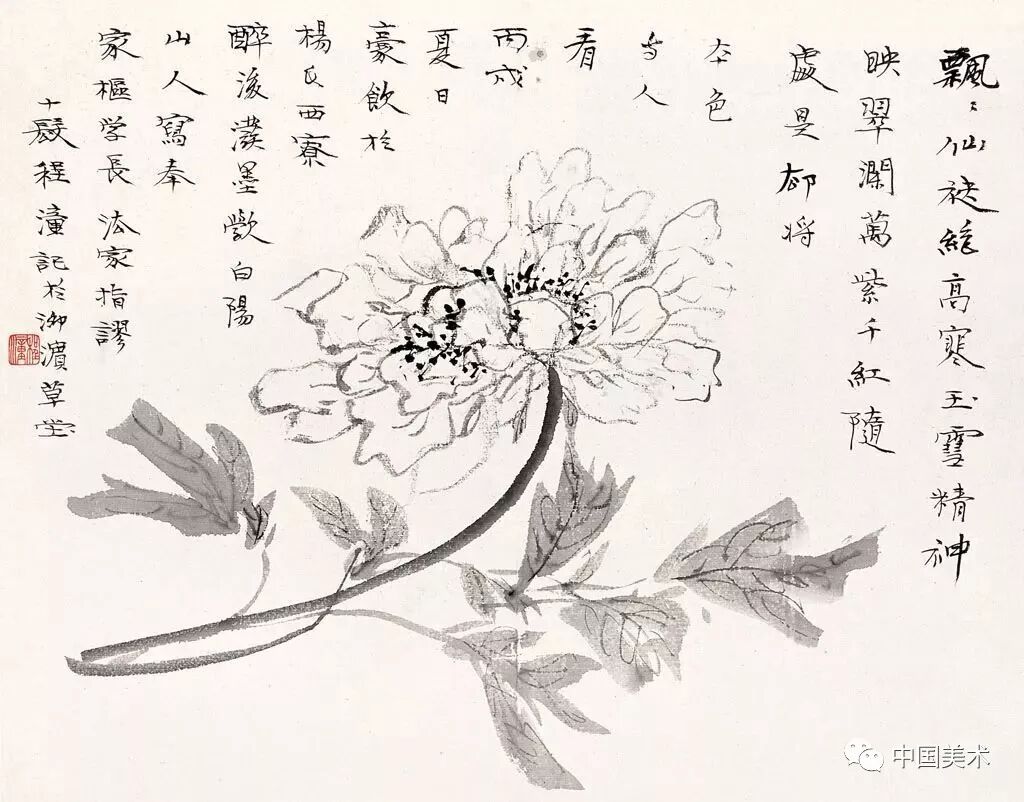 飄〻仙袂絶高寒玉雪精神
映翠瀾萬紫千紅隨
處是却將
本色
与人
看
丙戌
夏日
豪飲於
楊氏西寮
醉後潑墨斆白陽
山人寫奉
家樞学長 法家指謬
十髮程潼記於泖濵草堂
中国美术